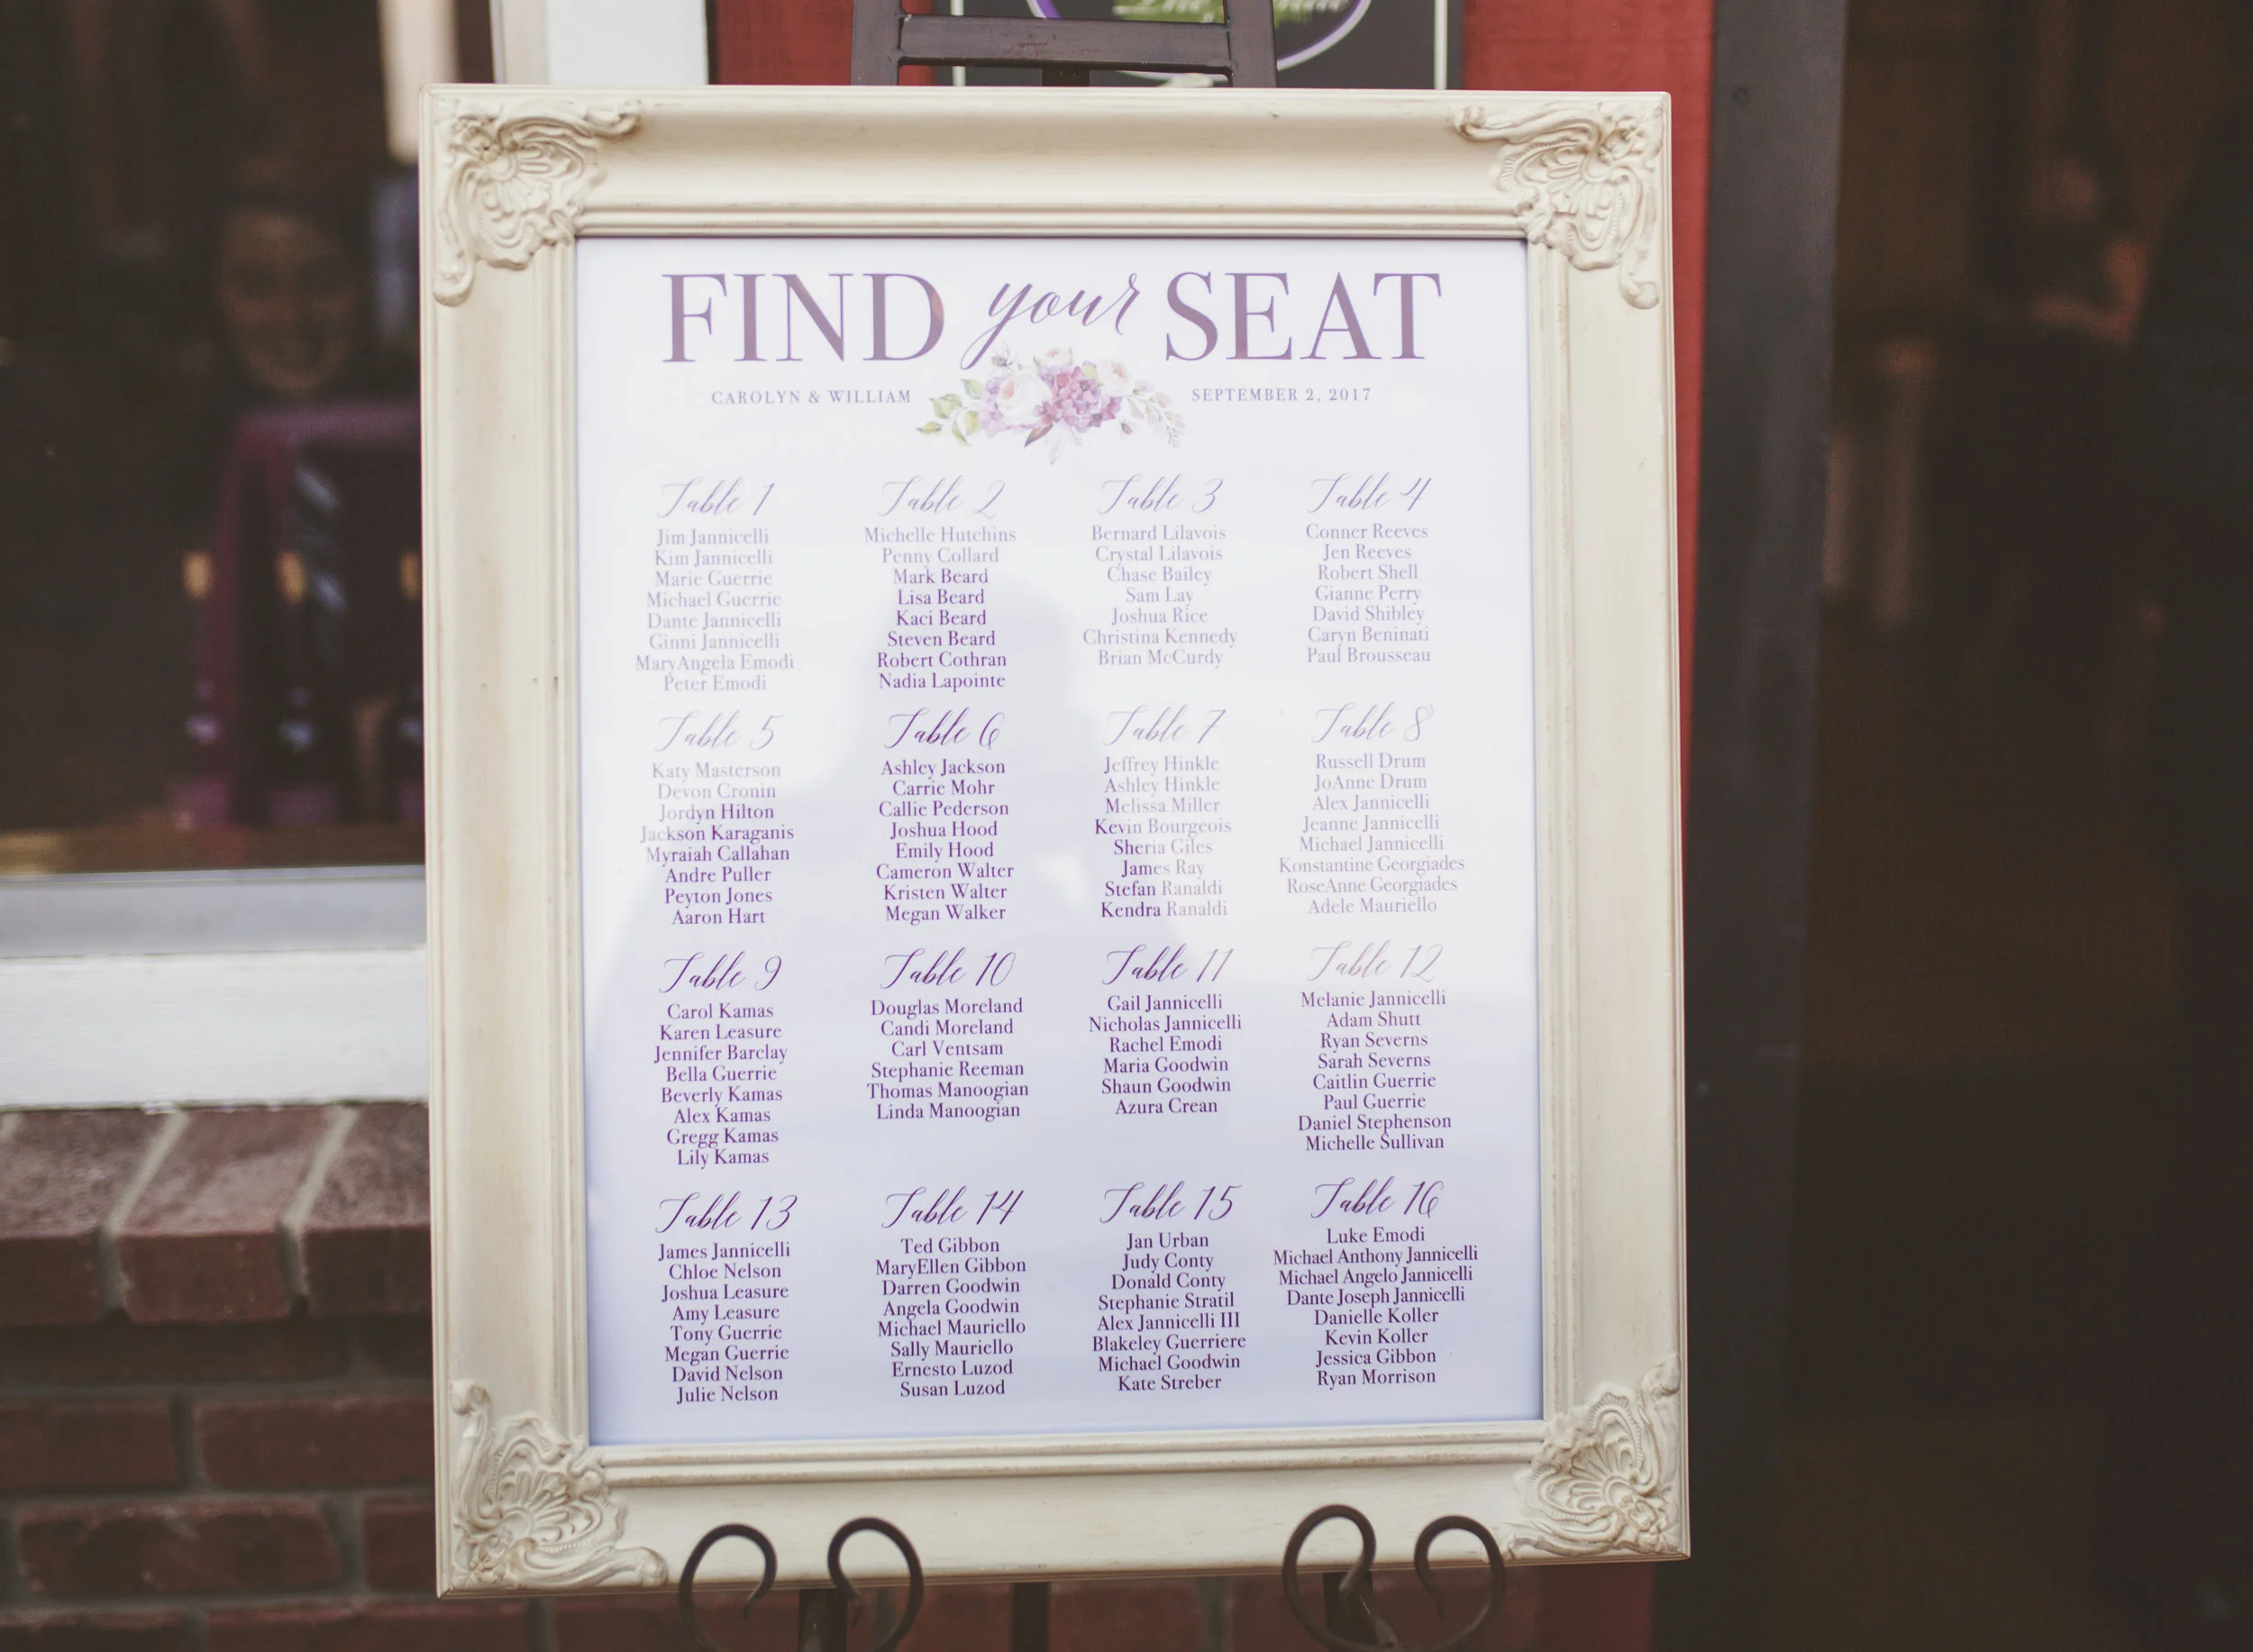 FIND your SEAT
CAROLYN & WILLIAM
SEPTEMBER 2, 2017
Table 1
Jim Jannicelli
Kim Jannicelli
Marie Guerrie
Michael Guerrie
Dante Jannicelli
Ginni Jannicelli
MaryAngela Emodi
Peter Emodi
Table 2
Michelle Hutchins
Penny Collard
Mark Beard
Lisa Beard
Kaci Beard
Steven Beard
Robert Cothran
Nadia Lapointe
Table 3
Bernard Lilavois
Crystal Lilavois
Chase Bailey
Sam Lay
Joshua Rice
Christina Kennedy
Brian McCurdy
Table 4
Conner Reeves
Jen Reeves
Robert Shell
Gianne Perry
David Shibley
Caryn Beninati
Paul Brousseau
Table 5
Katy Masterson
Devon Cronin
Jordyn Hilton
Jackson Karaganis
Myraiah Callahan
Andre Puller
Peyton Jones
Aaron Hart
Table 6
Ashley Jackson
Carrie Mohr
Callie Pederson
Joshua Hood
Emily Hood
Cameron Walter
Kristen Walter
Megan Walker
Table 7
Jeffrey Hinkle
Ashley Hinkle
Melissa Miller
Kevin Bourgeois
Sheria Giles
James Ray
Stefan Ranaldi
Kendra Ranaldi
Table 8
Russell Drum
JoAnne Drum
Alex Jannicelli
Jeanne Jannicelli
Michael Jannicelli
Konstantine Georgiades
RoseAnne Georgiades
Adele Mauriello
Table 9
Carol Kamas
Karen Leasure
Jennifer Barclay
Bella Guerrie
Beverly Kamas
Alex Kamas
Gregg Kamas
Lily Kamas
Table 10
Douglas Moreland
Candi Moreland
Carl Ventsam
Stephanie Reeman
Thomas Manoogian
Linda Manoogian
Table 11
Gail Jannicelli
Nicholas Jannicelli
Rachel Emodi
Maria Goodwin
Shaun Goodwin
Azura Crean
Table 12
Melanie Jannicelli
Adam Shutt
Ryan Severns
Sarah Severns
Caitlin Guerrie
Paul Guerrie
Daniel Stephenson
Michelle Sullivan
Table 13
James Jannicelli
Chloe Nelson
Joshua Leasure
Amy Leasure
Tony Guerrie
Megan Guerrie
David Nelson
Julie Nelson
Table 14
Ted Gibbon
MaryEllen Gibbon
Darren Goodwin
Angela Goodwin
Michael Mauriello
Sally Mauriello
Ernesto Luzod
Susan Luzod
Table 15
Jan Urban
Judy Conty
Donald Conty
Stephanie Stratil
Alex Jannicelli III
Blakeley Guerriere
Michael Goodwin
Kate Streber
Table 16
Luke Emodi
Michael Anthony Jannicelli
Michael Angelo Jannicelli
Dante Joseph Jannicelli
Danielle Koller
Kevin Koller
Jessica Gibbon
Ryan Morrison